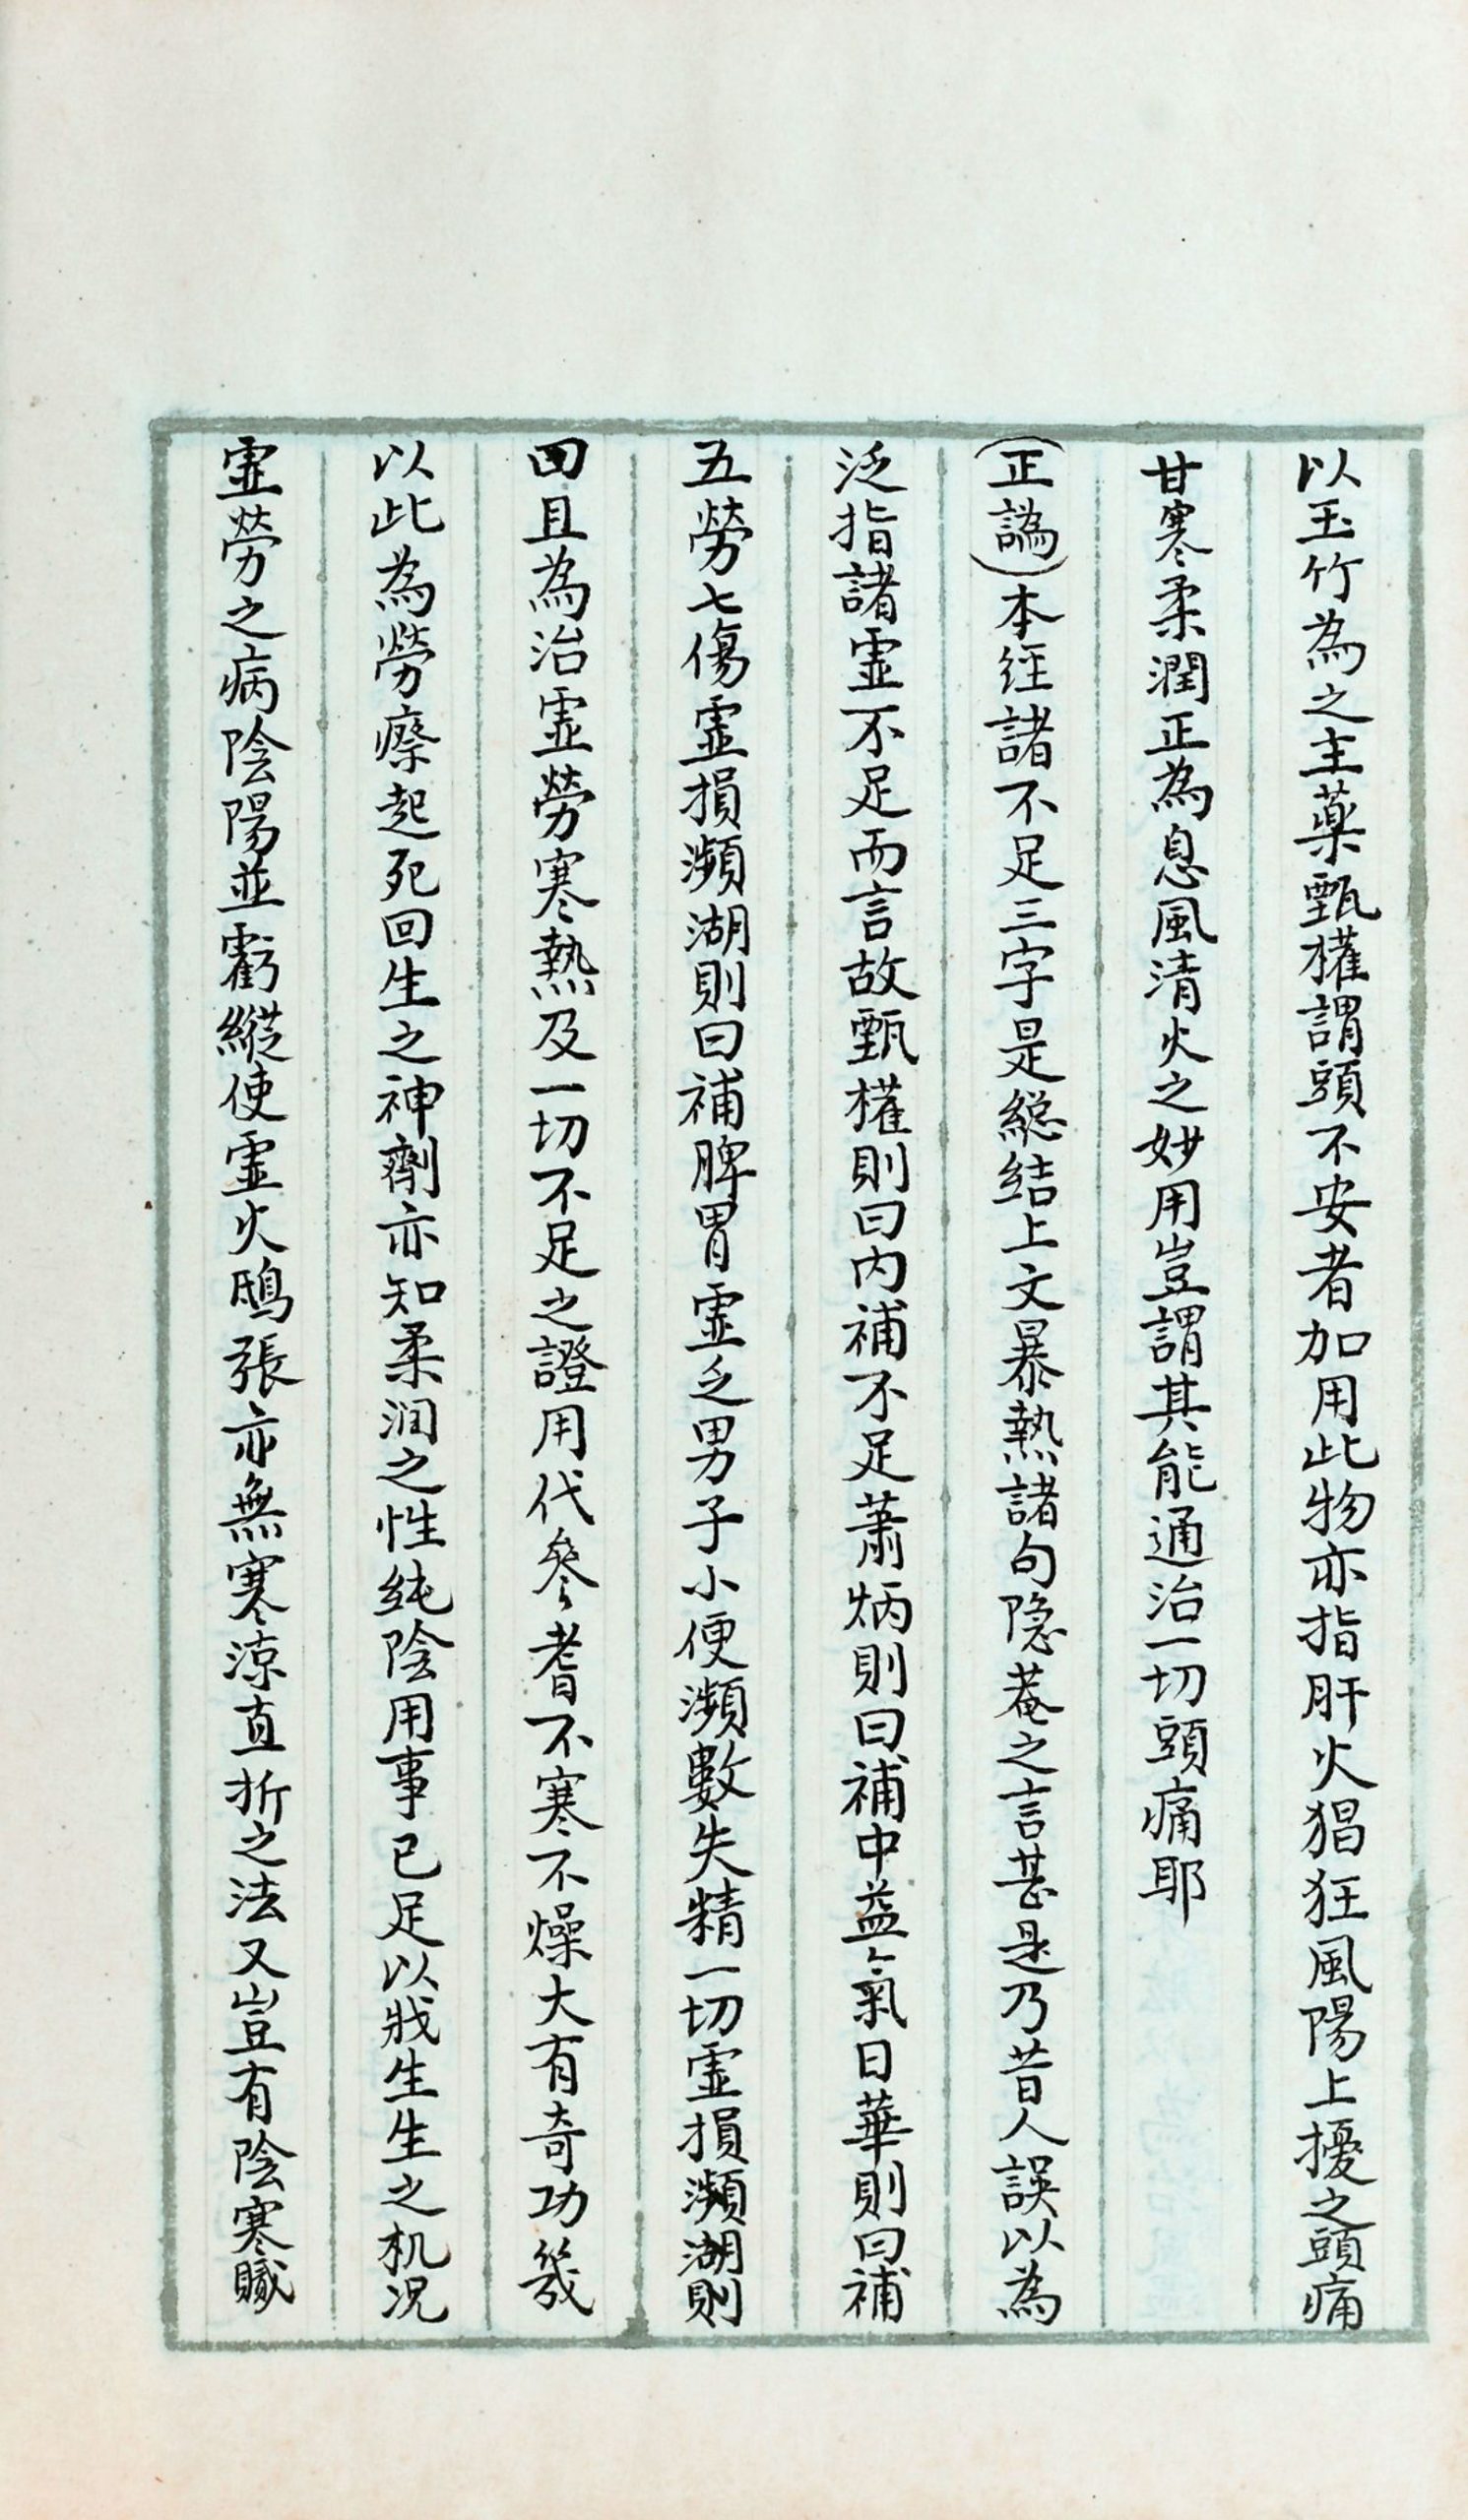 以玉竹為之主藥甄權謂頭不安者加用此物亦指肝火猖狂風陽上擾之頭痛
甘寒柔潤正為息風清火之妙用豈謂其能通治一切頭痛耶
(正譌)本經諸不足三字是總結上文暴熱諸句隐菴之言甚是乃昔人誤以為
泛指諸虛不足而言故甄權則曰內補不足蕭炳則曰補中益氣日華則曰補
五勞七傷虛損瀕湖則曰補脾胃虛乏男子小便瀕數失精一切虛損瀕湖則
曰且為治虛勞寒熱及一切不足之證用代參耆不寒不燥大有奇功幾
以此為勞瘵起死回生之神劑亦知柔润之性純陰用事已足以戕生生之机况
虛勞之病陰陽並虧縱使虛火鴟張亦無寒涼直折之法又豈有陰寒膩